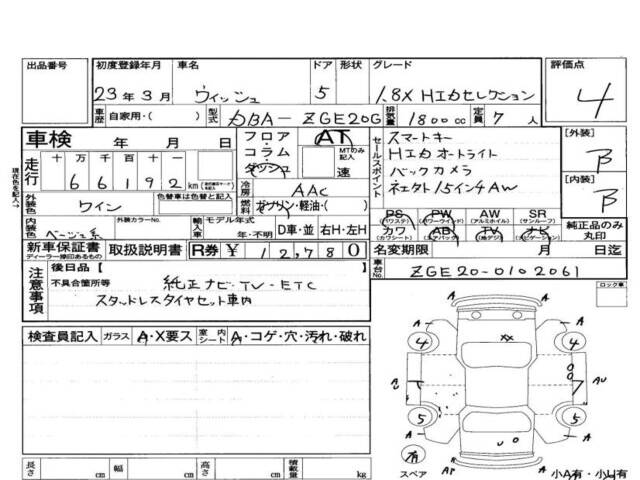 出品番号 初度登録年月 車名 ドア 形状 グレード 評価点
23年3月 ウィッシュ 5 1.8X HIDセレクション 4
車歴 自家用・( ) 型式 DBA-ZGE20G 排気量 1800cc 定員 7人
車検 年 月 日 フロア・コラム・ダッシュ AT MTのみ記入 速 セールスポイント スマートキー [外装] B
現在色を記入→
走行 十万千百十 66192km 色替車は色替と記入 冷房 AAC HIDオートライト
バックカメラ [内装] B
外装色 ワイン 燃料 ガソリン・軽油・( ) 社外15インチAW
内装色 ベージュ系 外装カラーNo. 輸入車 モデル年式 年・不明 D車・並 右H・左H
PS (パワステ) PW (パワーウインド) AW (アルミホイル) SR (サンルーフ)
カワ (カワシート) AB (エアバック) TV (地デジ) ナビ (ナビゲーション) 純正品のみ丸印
新車保証書 ディーラー様印あるもの 取扱説明書 R券 ¥ 12,780 名変期限 月 日迄
車台No. ZGE20-0102061
注意事項 後日品【
不具合箇所等 純正ナビ・TV・ETC
スタッドレスタイヤセット車内
ロック車
検査員記入 ガラス A・X要ス 室内シート A・コゲ・穴・汚れ・破れ
A A
4 XX 4
A A
A A
5 5
U
有
スペア A
長さ cm 幅 cm 高さ cm 積載量 kg 小A有・小U有